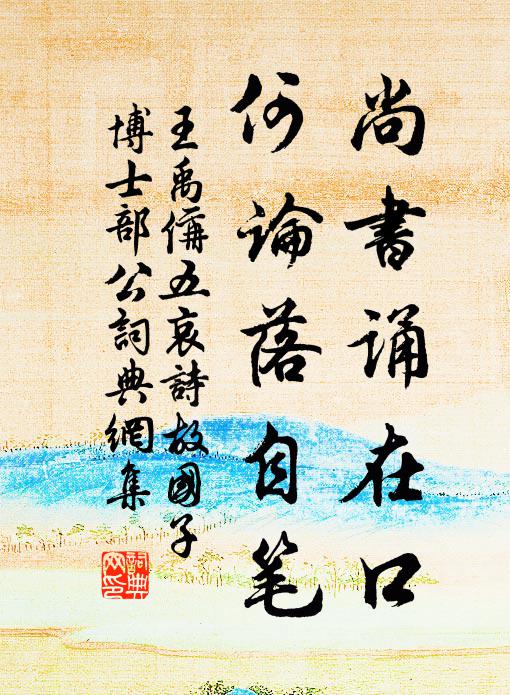 尚書誦在口
何論落自笔
王禹偁五哀詩故國子
博士部公詞典網集
詞典网印